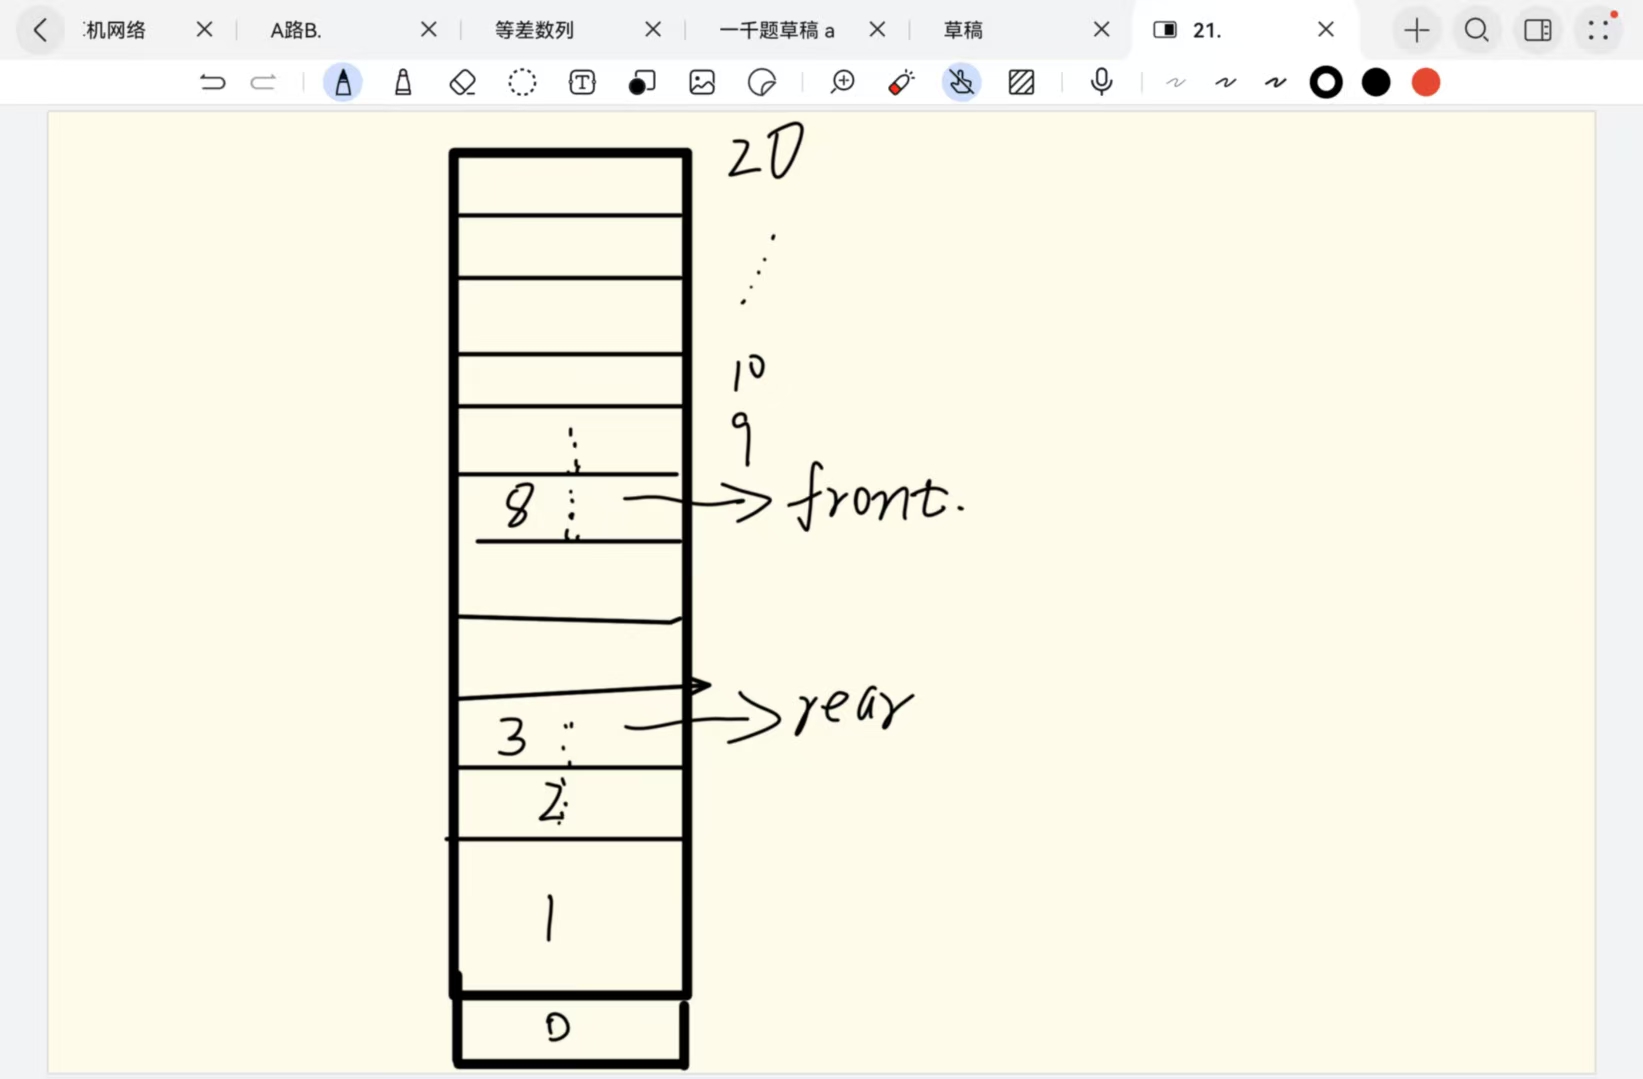 机网络
A路B.
等差数列
一千题草稿 a
草稿
21.
20
10
9
8
front.
3
rear
2
1
0